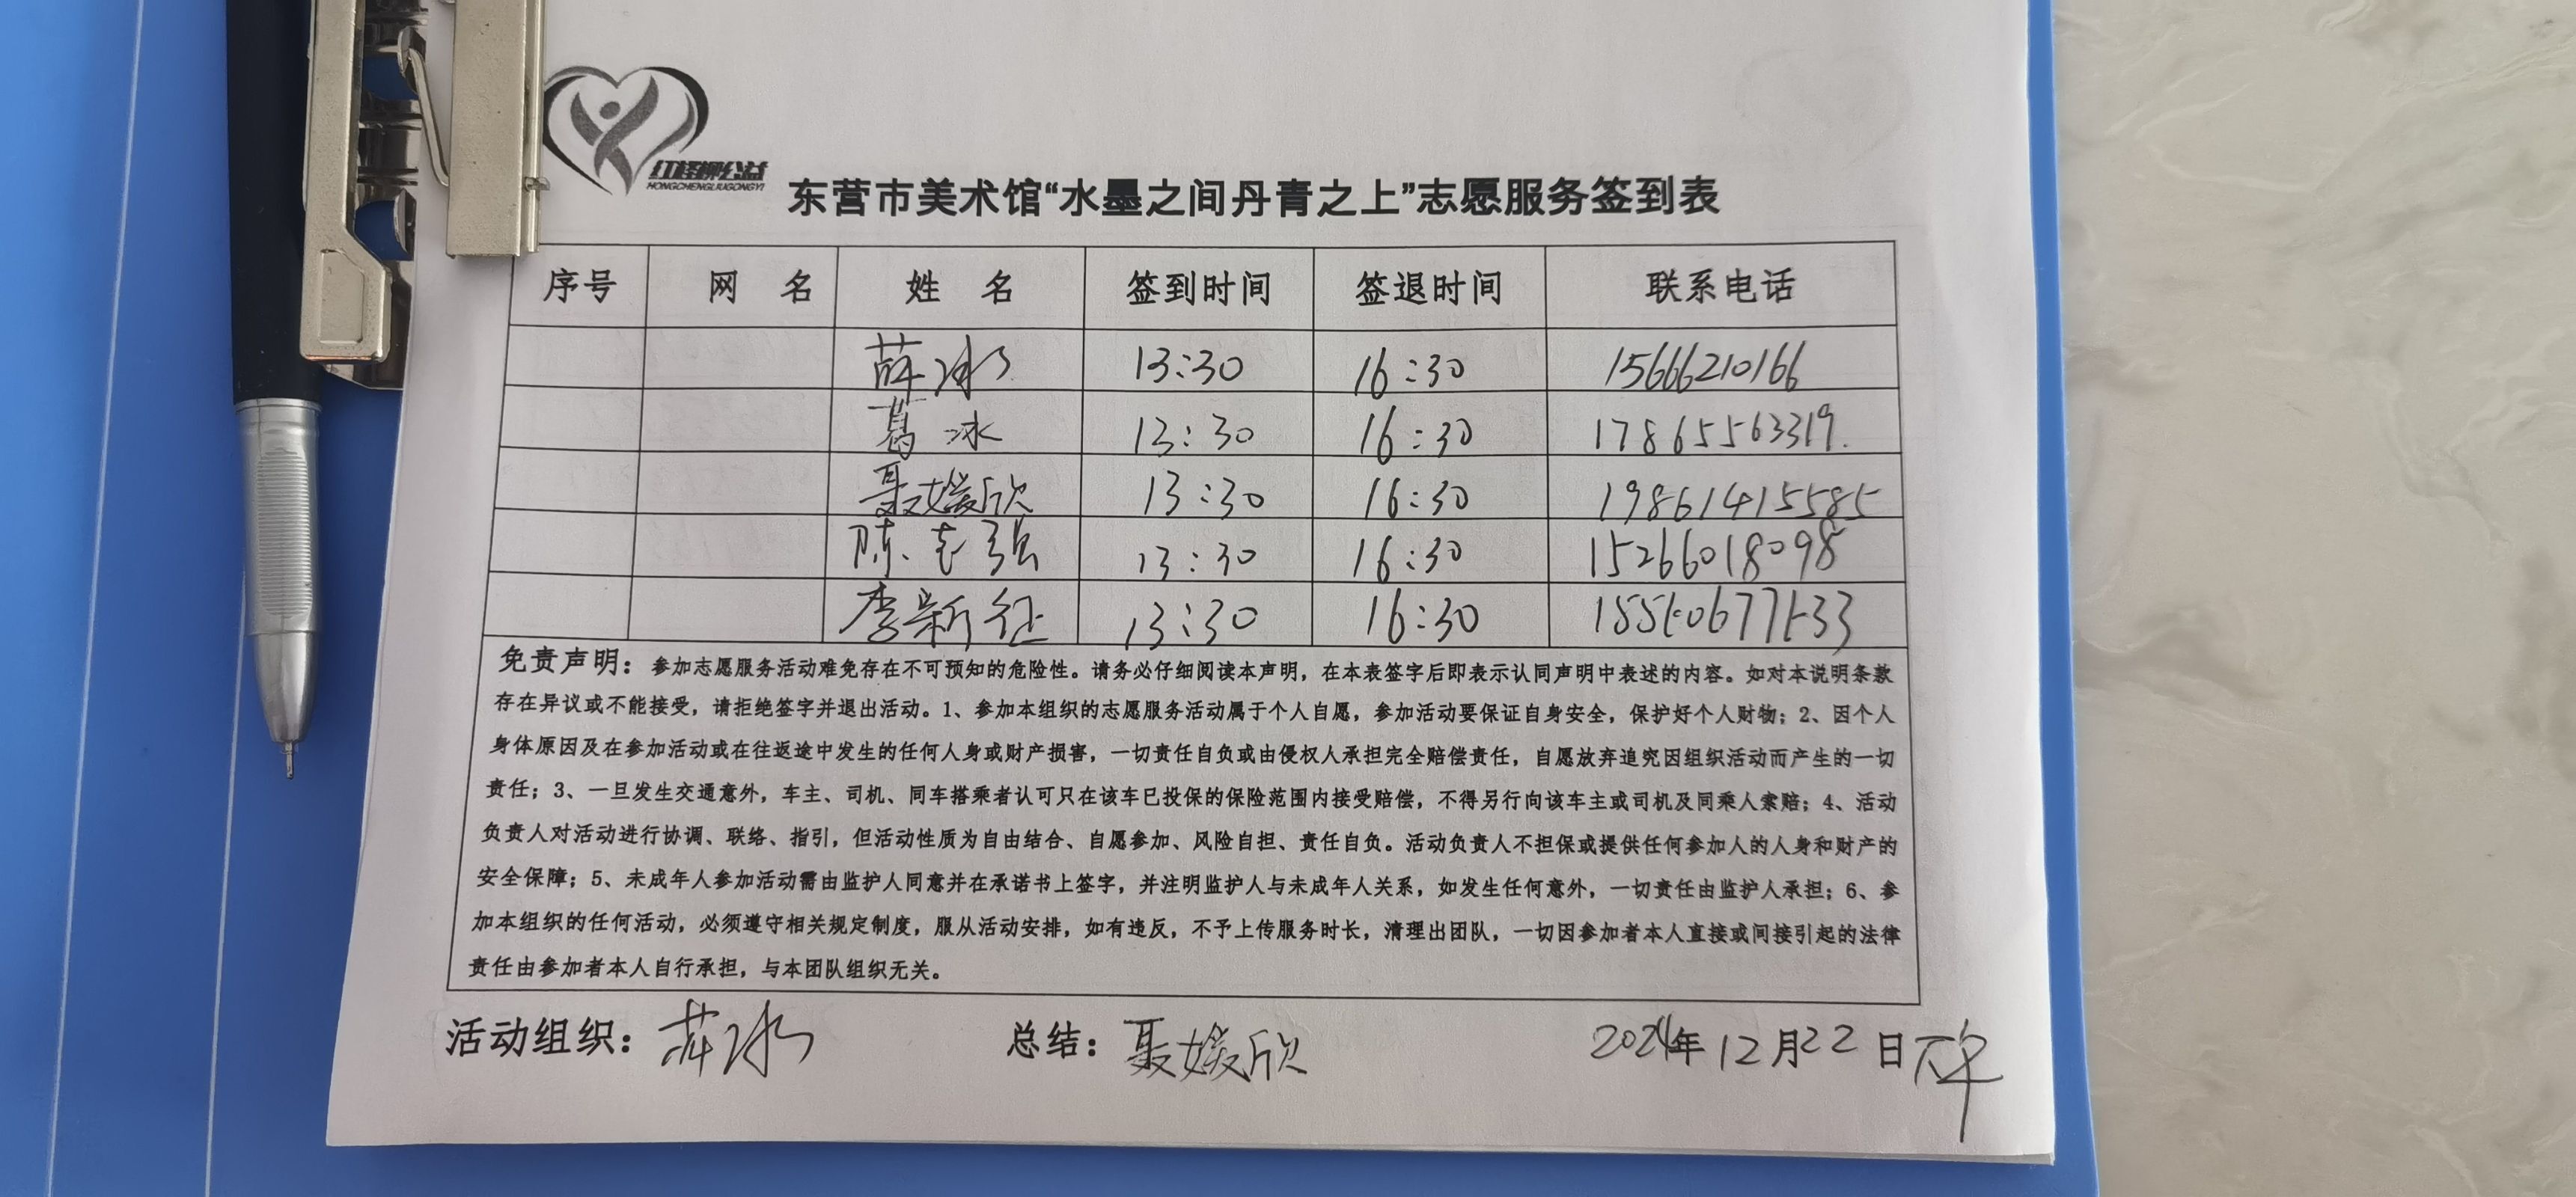 红柽柳公益
HONGCHENGLIUGONGYI
东营市美术馆“水墨之间丹青之上”志愿服务签到表
序号 网 名 姓 名 签到时间 签退时间 联系电话
薛冰 13:30 16:30 15666210166
葛冰 13:30 16:30 17865563319.
聂媛欣 13:30 16:30 19861415585
陈志强 13:30 16:30 15266018098
李新征 13:30 16:30 15550677533
免责声明：参加志愿服务活动难免存在不可预知的危险性。请务必仔细阅读本声明，在本表签字后即表示认同声明中表述的内容。如对本说明条款
存在异议或不能接受，请拒绝签字并退出活动。1、参加本组织的志愿服务活动属于个人自愿，参加活动要保证自身安全，保护好个人财物；2、因个人
身体原因及在参加活动或在往返途中发生的任何人身或财产损害，一切责任自负或由侵权人承担完全赔偿责任，自愿放弃追究因组织活动而产生的一切
责任；3、一旦发生交通意外，车主、司机、同车搭乘者认可只在该车已投保的保险范围内接受赔偿，不得另行向该车主或司机及同乘人索赔；4、活动
负责人对活动进行协调、联络、指引，但活动性质为自由结合、自愿参加、风险自担、责任自负。活动负责人不担保或提供任何参加人的人身和财产的
安全保障；5、未成年人参加活动需由监护人同意并在承诺书上签字，并注明监护人与未成年人关系，如发生任何意外，一切责任由监护人承担；6、参
加本组织的任何活动，必须遵守相关规定制度，服从活动安排，如有违反，不予上传服务时长，清理出团队，一切因参加者本人直接或间接引起的法律
责任由参加者本人自行承担，与本团队组织无关。
活动组织：薛冰 总结：聂媛欣 2024年12月22日下午